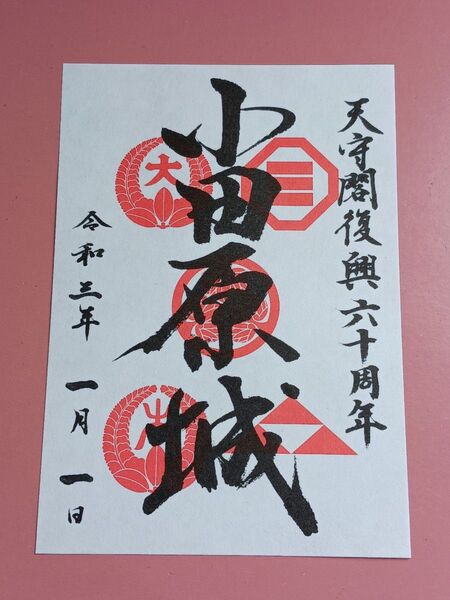 天守閣復興六十周年
小田原城
令和三年 一月 一日
大